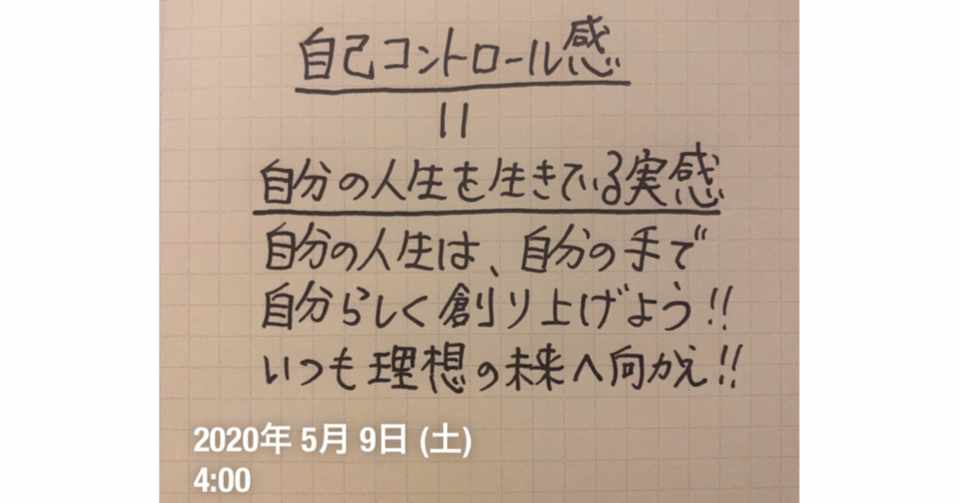 自己コントロール感
=
自分の人生を生きている実感
自分の人生は、自分の手で
自分らしく創り上げよう!!
いつも理想の未来へ向かえ!!
2020年 5月 9日 (土)
4:00